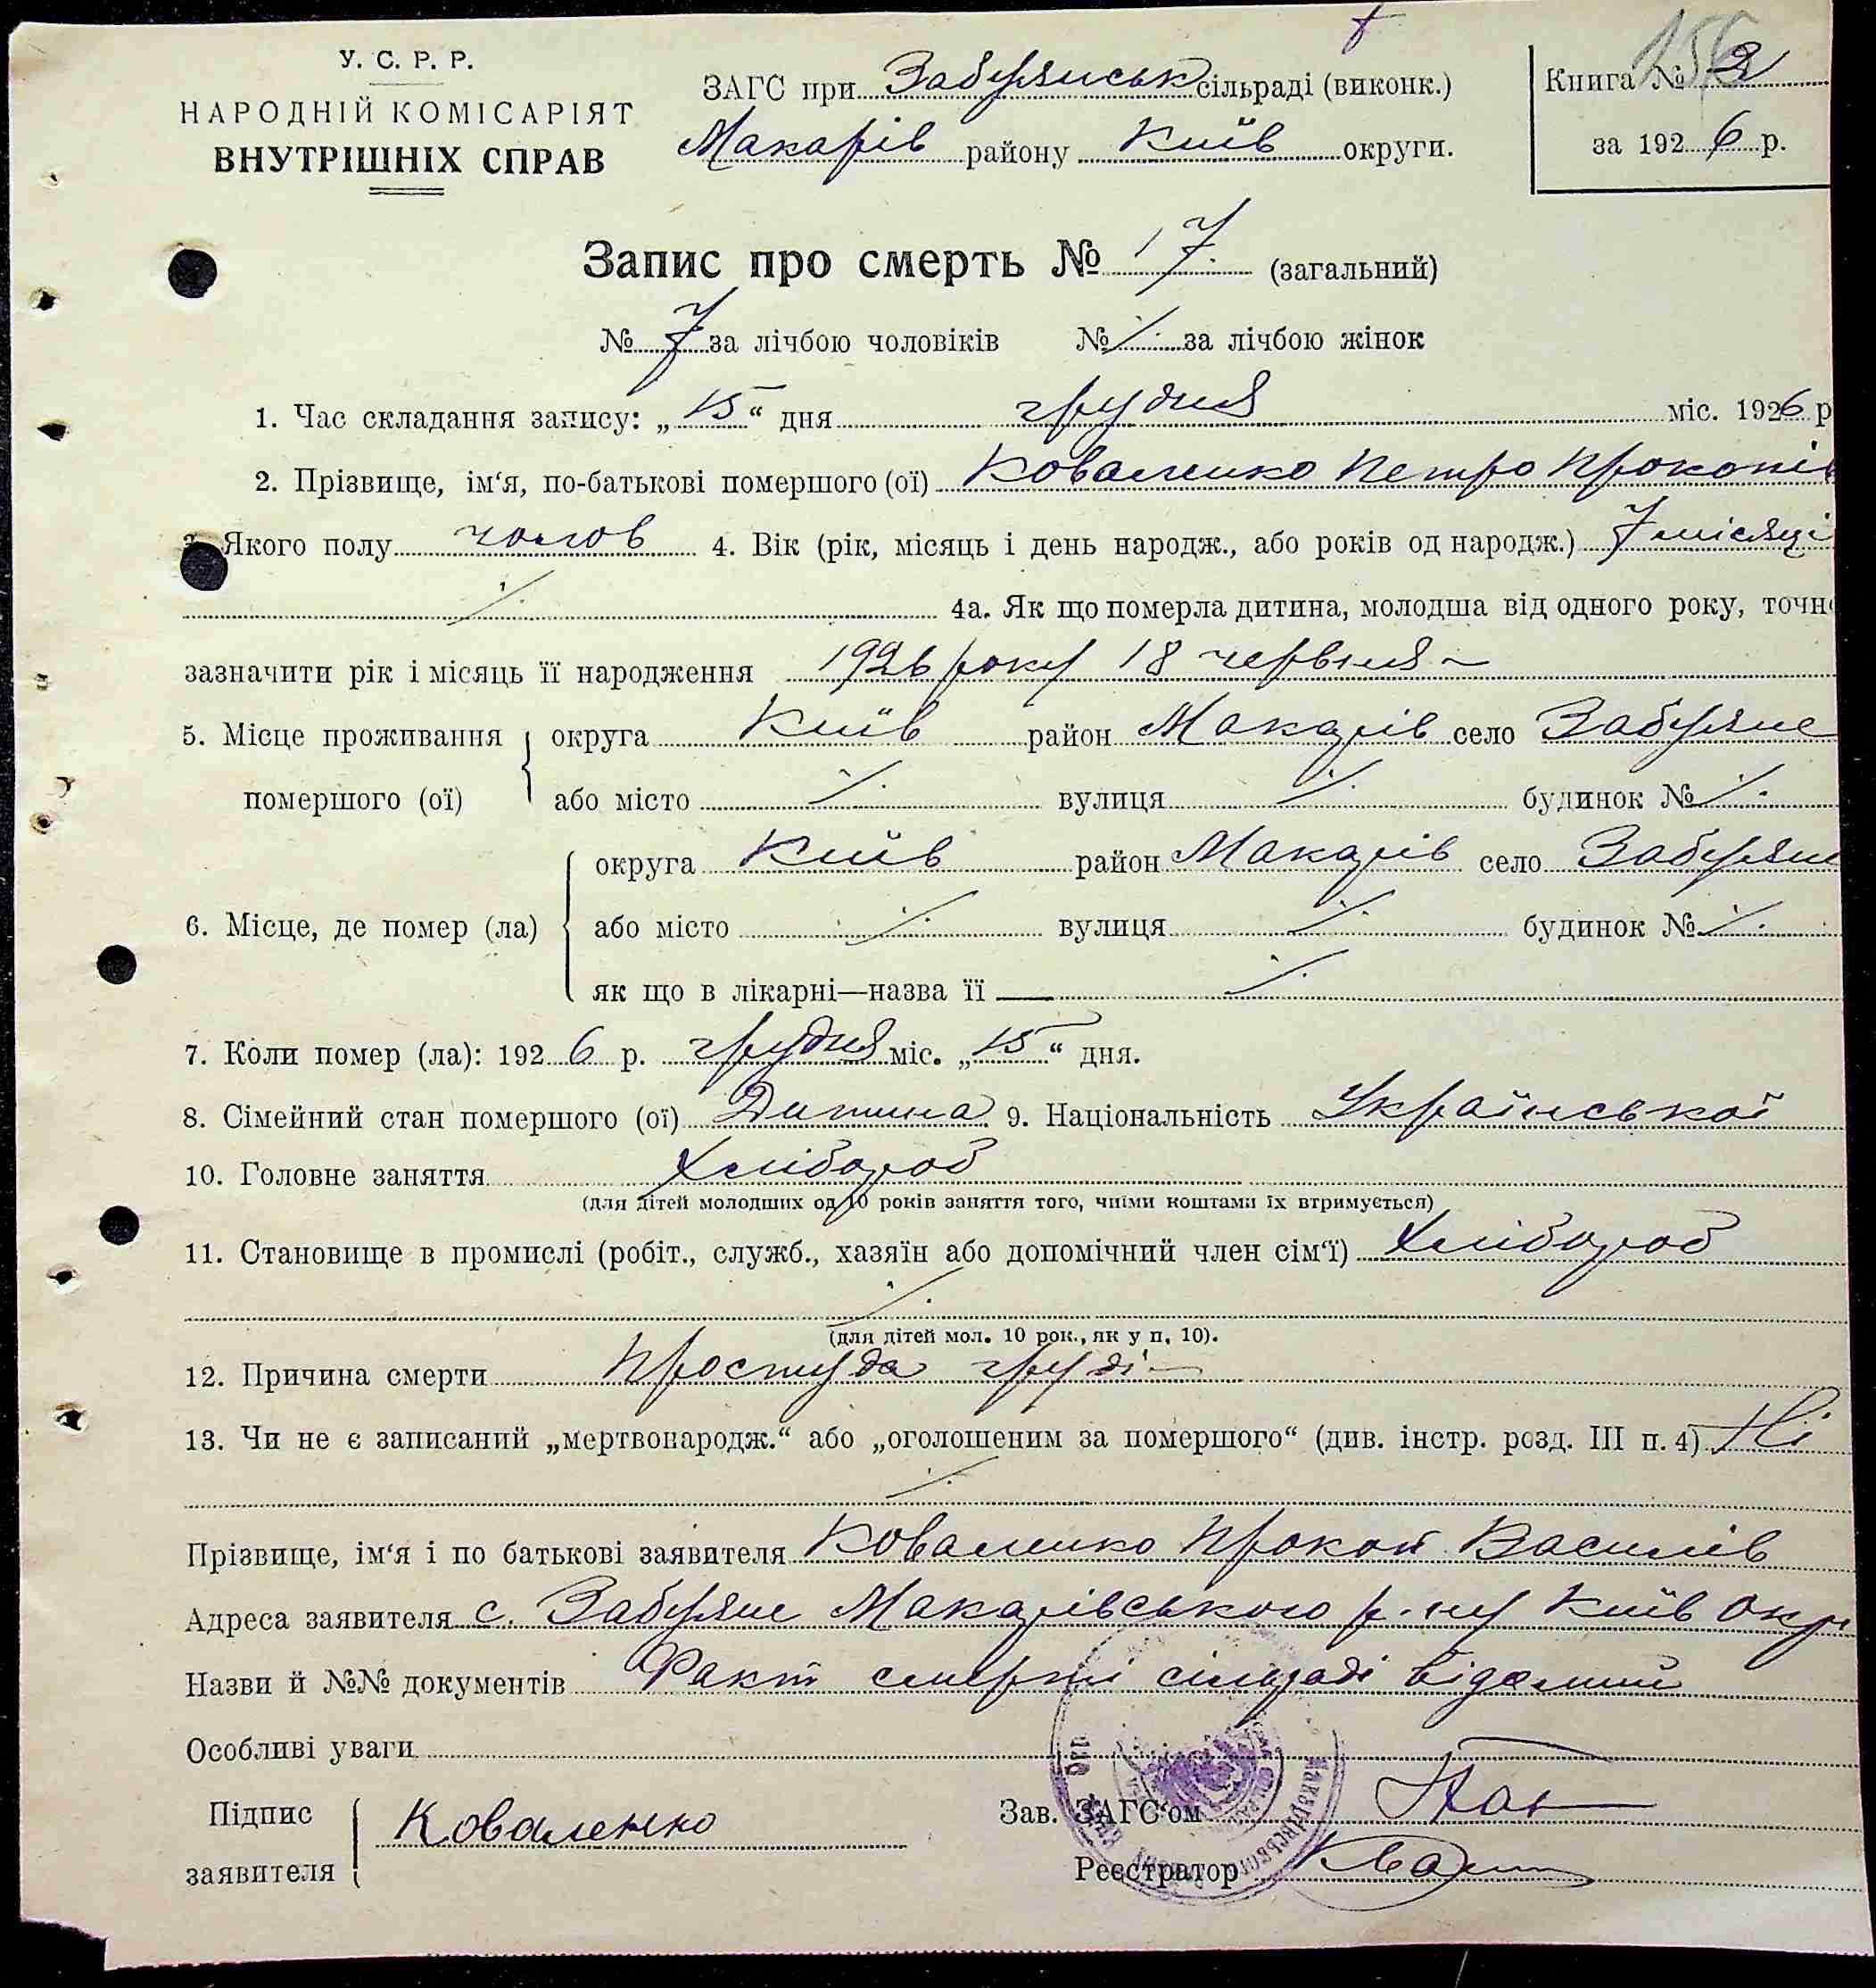 У. С. Р. Р.
НАРОДНІЙ КОМІСАРІЯТ
ВНУТРІШНІХ СПРАВ
ЗАГС при Забуянськ сільраді (виконк.)
Макарів району Київ округи.
156
Книга № 2
за 1926 р.
Запис про смерть № 17. (загальний)
№ 7 за лічбою чоловіків № /. за лічбою жінок
1. Час складання запису: „15“ дня грудня міс. 1926 р
2. Прізвище, ім‘я, по-батькові помершого (ої) Коваленко Петро Прокопів
3. Якого полу чолов 4. Вік (рік, місяць і день народж., або років од народж.) 7 місяці
/. 4а. Як що померла дитина, молодша від одного року, точно
зазначити рік і місяць її народження 1926 року 18 червня
5. Місце проживання округа Київ район Макарів село Забуяне
помершого (ої) або місто /. вулиця /. будинок № /.
округа Київ район Макарів село Забуяне
6. Місце, де помер (ла) або місто /. вулиця /. будинок № /.
як що в лікарні—назва її /.
7. Коли помер (ла): 1926 р. грудня міс. „15“ дня.
8. Сімейний стан помершого (ої) Дитина 9. Національність Української
10. Головне заняття Хлібороб
(для дітей молодших од 10 років заняття того, чиїми коштами їх втримується)
11. Становище в промислі (робіт., служб., хазяїн або допомічний член сім‘ї) Хлібороб
/.
(для дітей мол. 10 рок., як у п. 10).
12. Причина смерти простуда груді
13. Чи не є записаний „мертвонародж.“ або „оголошеним за помершого“ (див. інстр. розд. III п. 4) Ні
/.
Прізвище, ім‘я і по батькові заявителя Коваленко Прокоп Василів
Адреса заявителя с. Забуяне Макарівського р-ну Київ Окр
Назви й №№ документів Факт смерті сільраді відомий
Особливі уваги
Підпис
заявителя
Коваленко
Зав. ЗАГС‘ом
Реєстратор